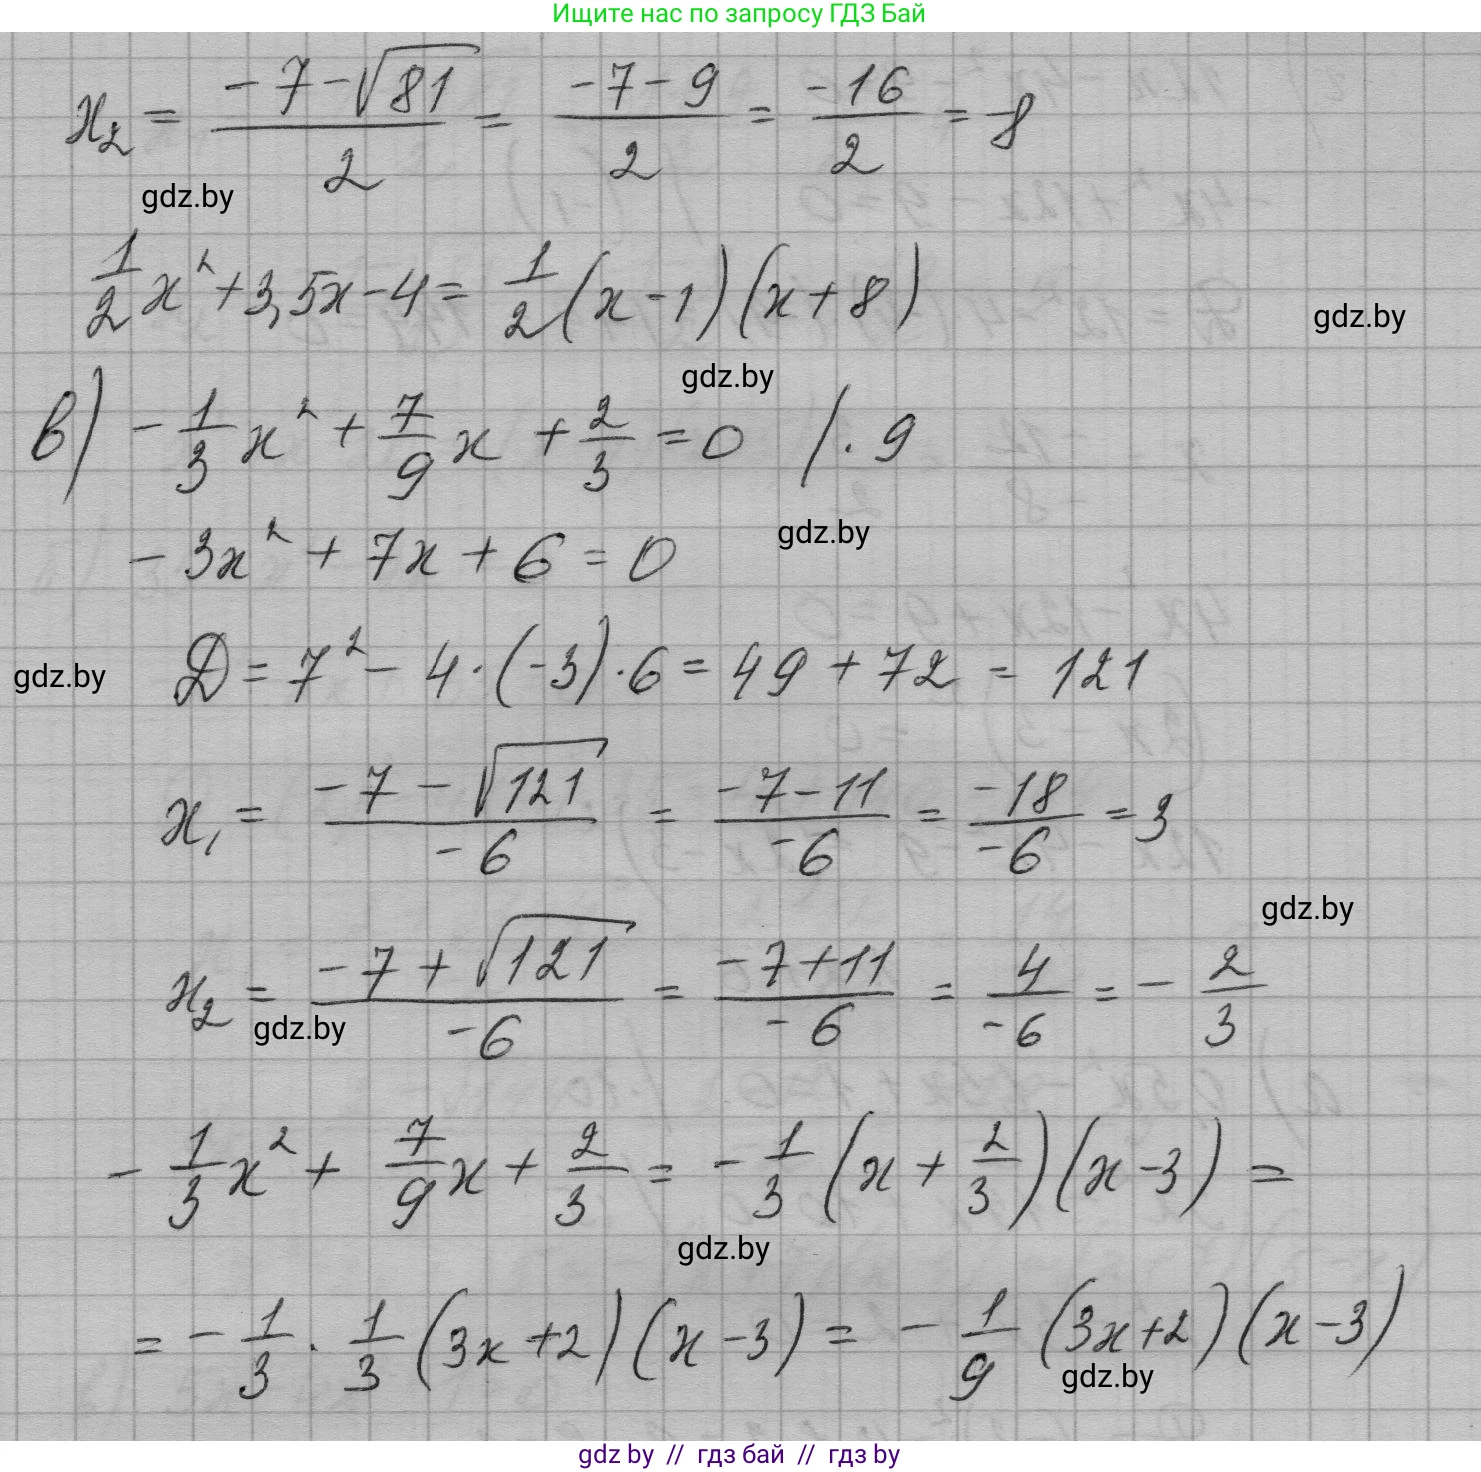 Ищите нас по запросу ГДЗ Бай
x₂ = (-7-√81)/2 = (-7-9)/2 = -16/2 = -8
gdz.by
1/2 x² + 3,5x - 4 = 1/2 (x-1)(x+8)
gdz.by
gdz.by
в) - 1/3 x² + 7/9 x + 2/3 = 0 /·9
gdz.by
- 3x² + 7x + 6 = 0
gdz.by
Д = 7² - 4·(-3)·6 = 49 + 72 = 121
x₁ = (-7 - √121)/-6 = (-7-11)/-6 = -18/-6 = 3
gdz.by
x₂ = (-7 + √121)/-6 = (-7+11)/-6 = 4/-6 = - 2/3
gdz.by
- 1/3 x² + 7/9 x + 2/3 = - 1/3 (x + 2/3)(x-3) =
gdz.by
= - 1/3 · 1/3 (3x+2)(x-3) = - 1/9 (3x+2)(x-3)
gdz.by
gdz by // гдз бай // гдз by